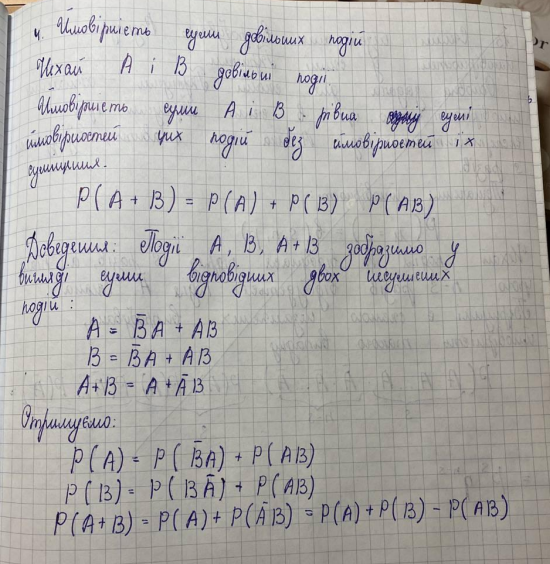 4. Ймовірність суми довільних подій
Нехай A і B довільні події
Ймовірність суми A і B рівна сумі
ймовірностей цих подій без ймовірностей їх
суміщення.
P(A + B) = P(A) + P(B) P(AB)
Доведення: Події A, B, A+B зобразимо у
вигляді суми відповідних двох несумісних
подій:
A = B̄A + AB
B = B̄A + AB
A+B = A + ĀB
Отримуємо:
P(A) = P(B̄A) + P(AB)
P(B) = P(BĀ) + P(AB)
P(A+B) = P(A) + P(ĀB) = P(A) + P(B) - P(AB)